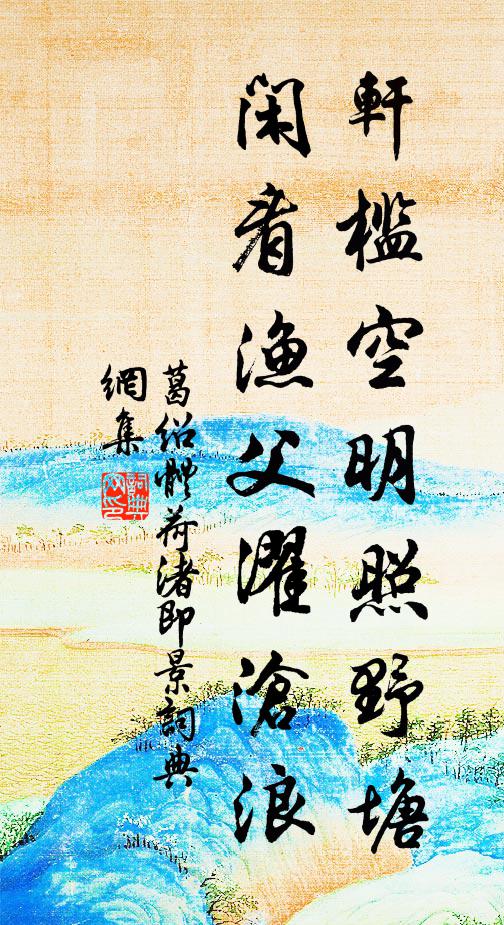 軒檻空明照野塘
閑看漁父濯滄浪
葛紹體荷渚即景詞典
網集